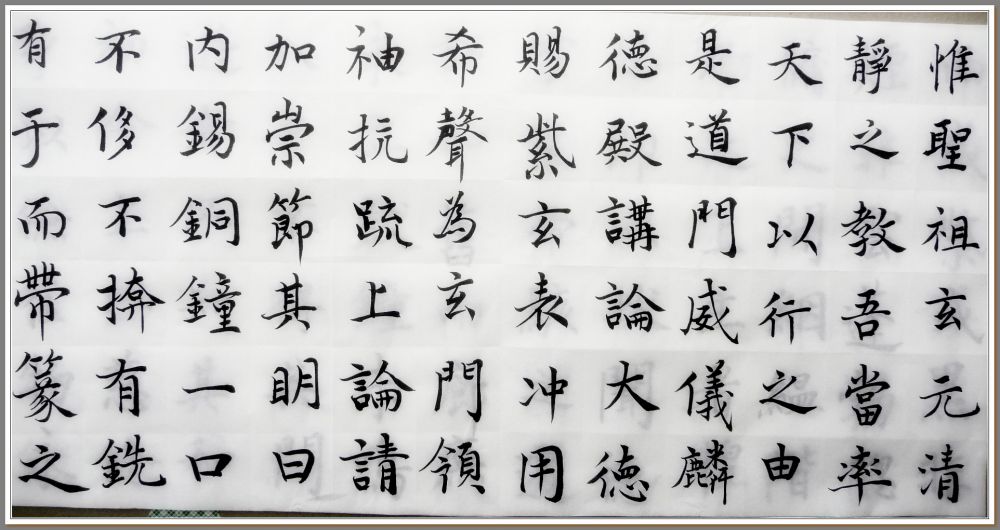 惟聖祖玄元清
靜之教吾當率
天下以行之由
是道門威儀麟
德殿講論大德
賜紫玄表冲用
希聲為玄門領
袖抗疏上論請
加崇節其眀日
内錫銅鐘一口
不侈不揜有銑
有于而帶篆之